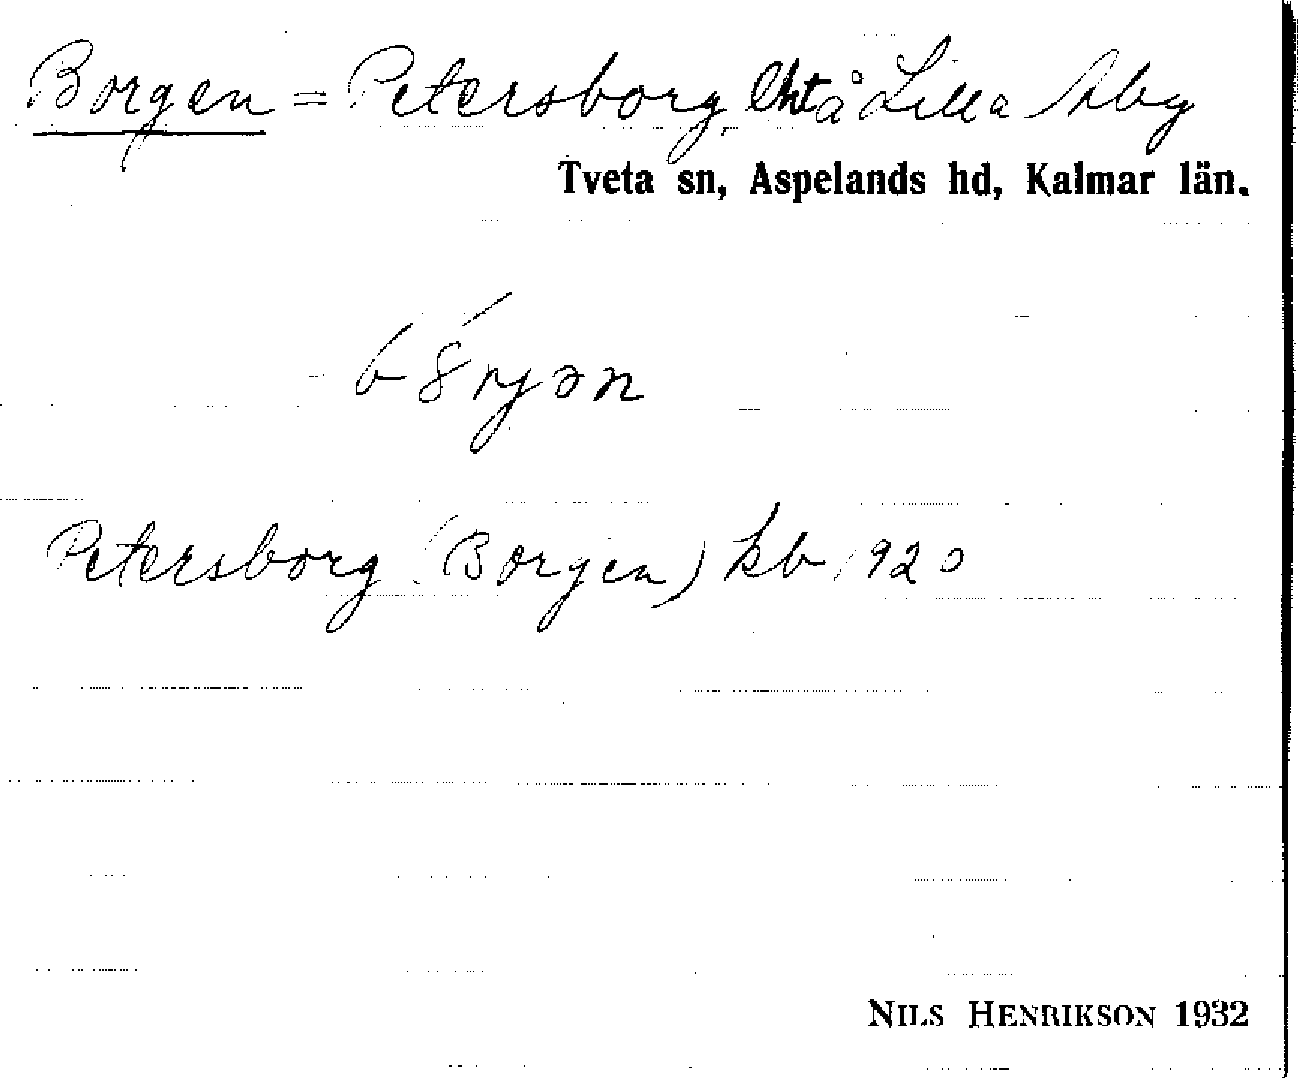 Borgen = Petersborg, lht å Lilla Åby
Tveta sn, Aspelands hd, Kalmar län.
Petersborg (Borgen) kb 1920
NILS HENRIKSON 1932